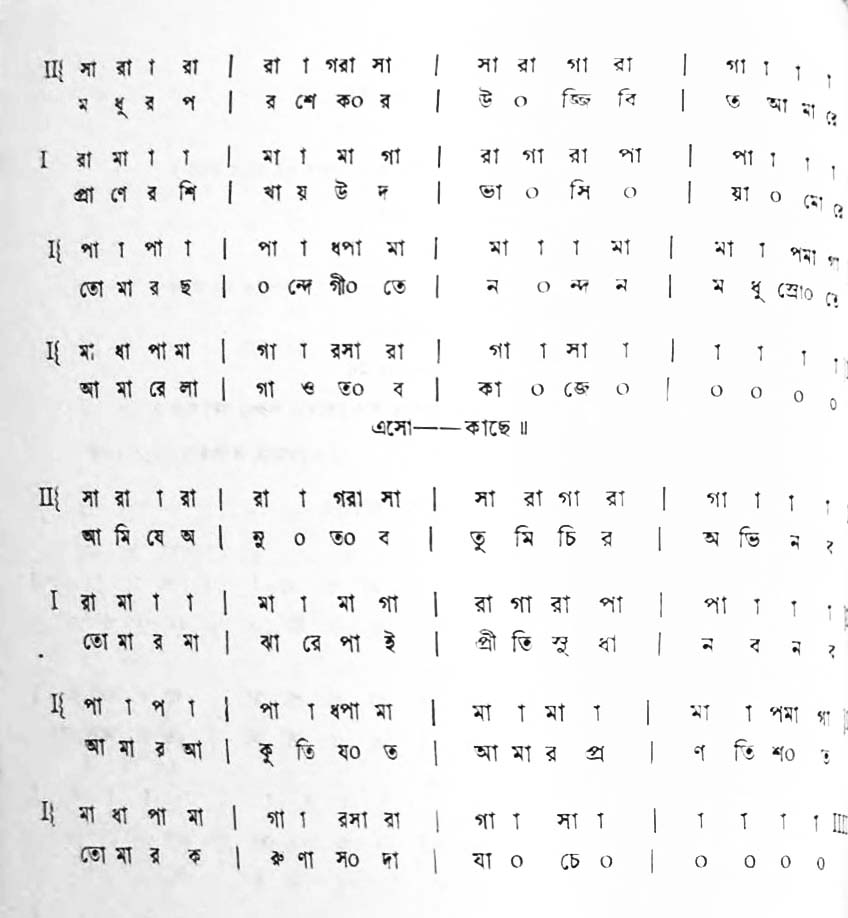 II{ সা রা া রা | রা া গরা সা | সা রা গা রা | গা া া া
ম ধু র প | র শে ক০ র | উ ০ জ্জি বি | ত আ মা রে
I রা মা া া | মা া মা গা | রা গা রা পা | পা া া া
প্রা ণে র শি | খা য় উ দ | ভা ০ সি ০ | য়া ০ মো রে
I{ পা া পা া | পা া ধপা মা | মা া া মা | মা া পমা গা
তো মা র ছ | ০ ন্দে গী০ তে | ন ০ ন্দ ন | ম ধু স্রো০ তে
I{ মা ধা পা মা | গা া রসা রা | গা া সা া | া া া া
আ মা রে লা | গা ও ত০ ব | কা ০ জে ০ | ০ ০ ০ ০
এসো—— কাছে ॥
II{ সা রা া রা | রা া গরা সা | সা রা গা রা | গা া া া
আ মি যে অ | নু ০ ত০ ব | তু মি চি র | অ ভি ন ব
I রা মা া া | মা া মা গা | রা গা রা পা | পা া া া
তো মা র মা | ঝা রে পা ই | প্রী তি সু ধা | ন ব ন ব
I{ পা া প া | পা া ধপা মা | মা া মা া | মা া পমা গা
আ মা র আ | কূ তি য০ ত | আ মা র প্র | ণ তি শ০ ত
I{ মা ধা পা মা | গা া রসা রা | গা া সা া | া া া া III
তো মা র ক | রু ণা স০ দা | যা ০ চে ০ | ০ ০ ০ ০